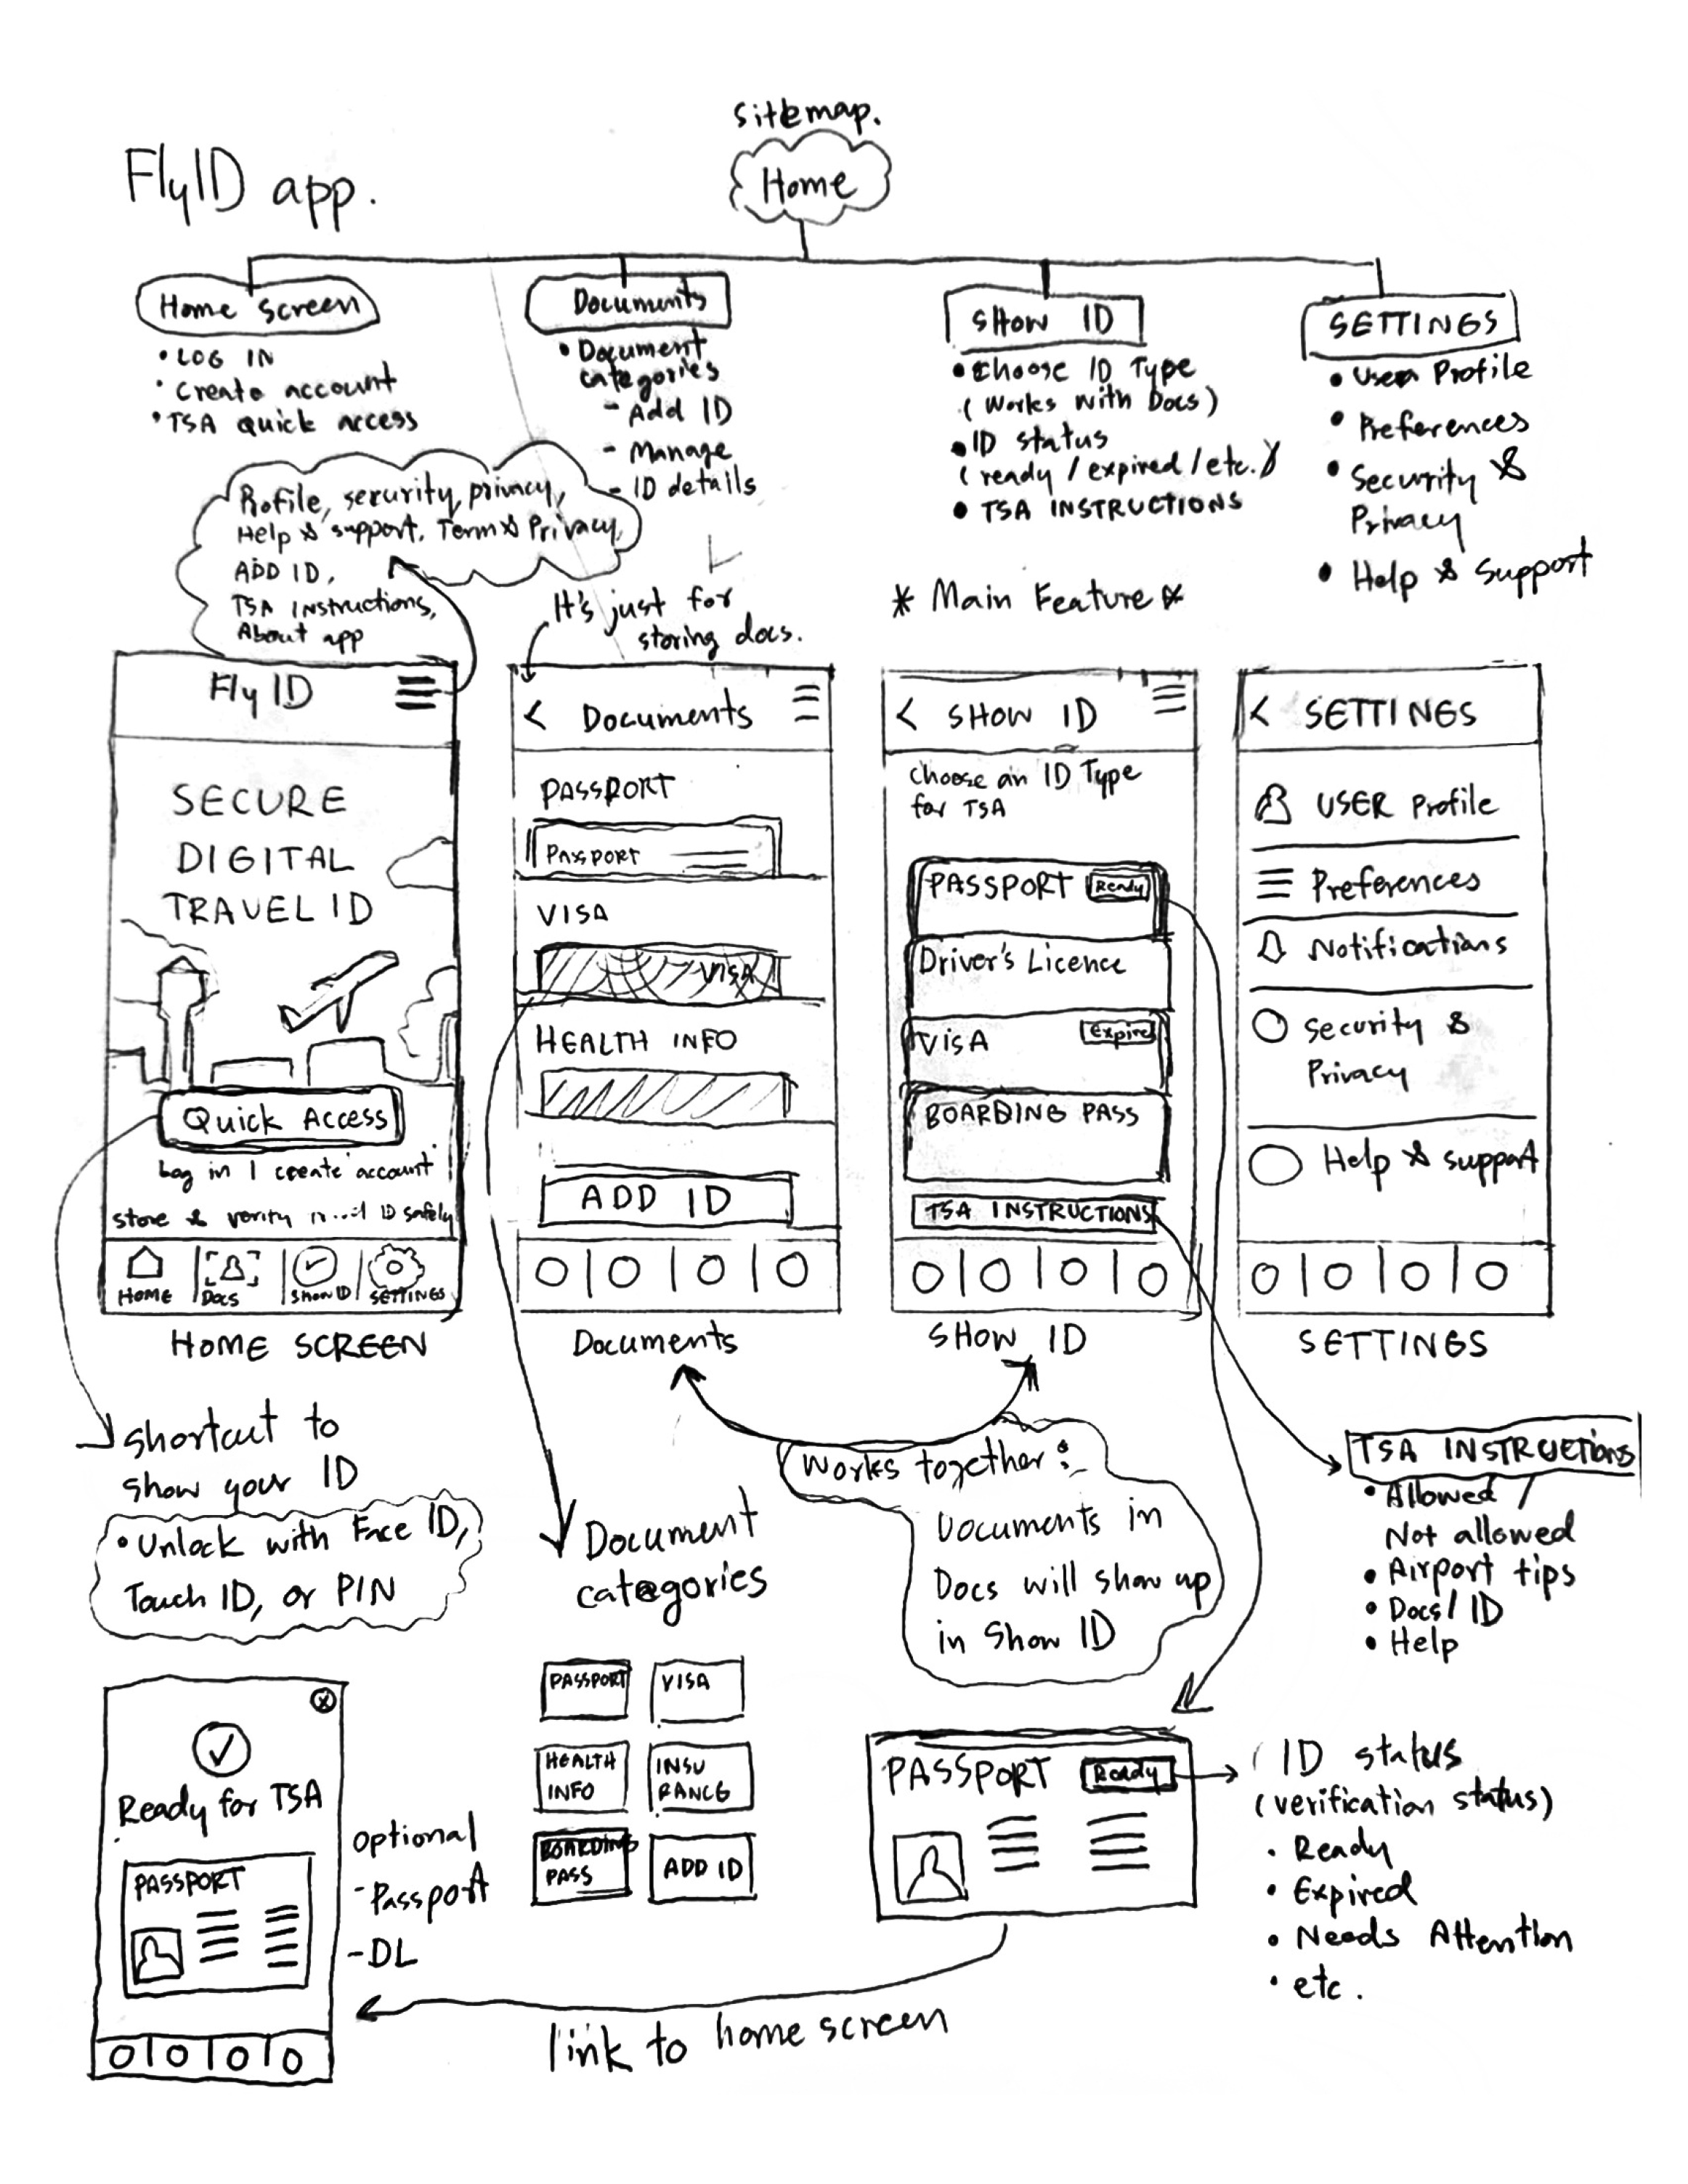 sitemap.
FlyID app.
Home
Home screen
• LOG IN
• Create account
• TSA quick access
Documents
• Document
categories
- Add ID
- Manage
- ID details
SHOW ID
• Choose ID Type
(Works with Docs)
• ID status
(ready / expired / etc.)
• TSA INSTRUCTIONS
SETTINGS
• User Profile
• Preferences
• Security &
Privacy
• Help & Support
Profile, security, privacy,
Help & support, Term & Privacy,
ADD ID,
TSA Instructions,
About app
It's just for
storing docs.
* Main Feature *
Fly ID
SECURE
DIGITAL
TRAVEL ID
Quick Access
Log in | create account
store & verify ID safely
HOME
Docs
SHOW ID
SETTINGS
HOME SCREEN
< Documents
PASSPORT
PASSPORT
VISA
VISA
HEALTH INFO
ADD ID
Documents
< SHOW ID
Choose an ID Type
for TSA
PASSPORT Ready
Driver's Licence
VISA Expire
BOARDING PASS
TSA INSTRUCTIONS
SHOW ID
< SETTINGS
USER Profile
Preferences
Notifications
Security &
Privacy
Help & support
SETTINGS
shortcut to
show your ID
• Unlock with Face ID,
Touch ID, or PIN
Document
categories
works together:
Documents in
Docs will show up
in Show ID
TSA INSTRUCTIONS
• Allowed /
Not allowed
• Airport tips
• Docs/ID
• Help
Ready for TSA
PASSPORT
optional
- Passport
- DL
PASSPORT
VISA
HEALTH
INFO
INSU
RANCE
BOARDING
PASS
ADD ID
PASSPORT Ready
ID status
(verification status)
• Ready
• Expired
• Needs Attention
• etc.
link to home screen